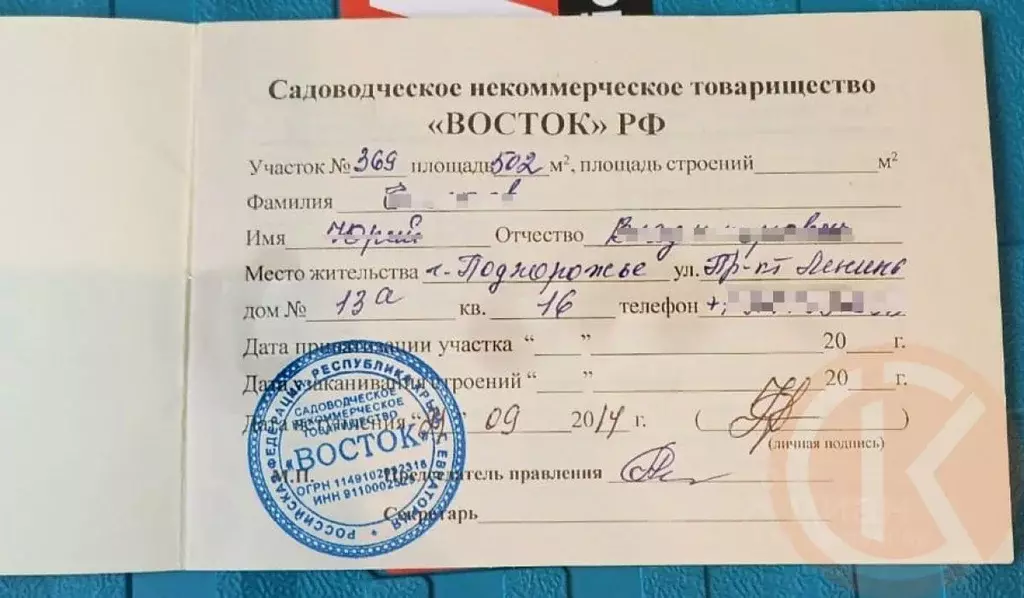 Садоводческое некоммерческое товарищество
«ВОСТОК» РФ
Участок № 369 площадь 502 м², площадь строений м²
Фамилия
Имя Юрий Отчество
Место жительства г. Подпорожье ул. Пр-кт Ленина
дом № 13а кв. 16 телефон +
Дата приватизации участка “ ” 20 г.
Дата заканивания строений “ ” 20 г.
Дата вступления “ ” 09 2014 г. ( )
(личная подпись)
М.П. Председатель правления
Секретарь
РОССИЙСКАЯ ФЕДЕРАЦИЯ РЕСПУБЛИКА КРЫМ ЕВПАТОРИЯ
САДОВОДЧЕСКОЕ
НЕКОММЕРЧЕСКОЕ
ТОВАРИЩЕСТВО
«ВОСТОК»
ОГРН
ИНН